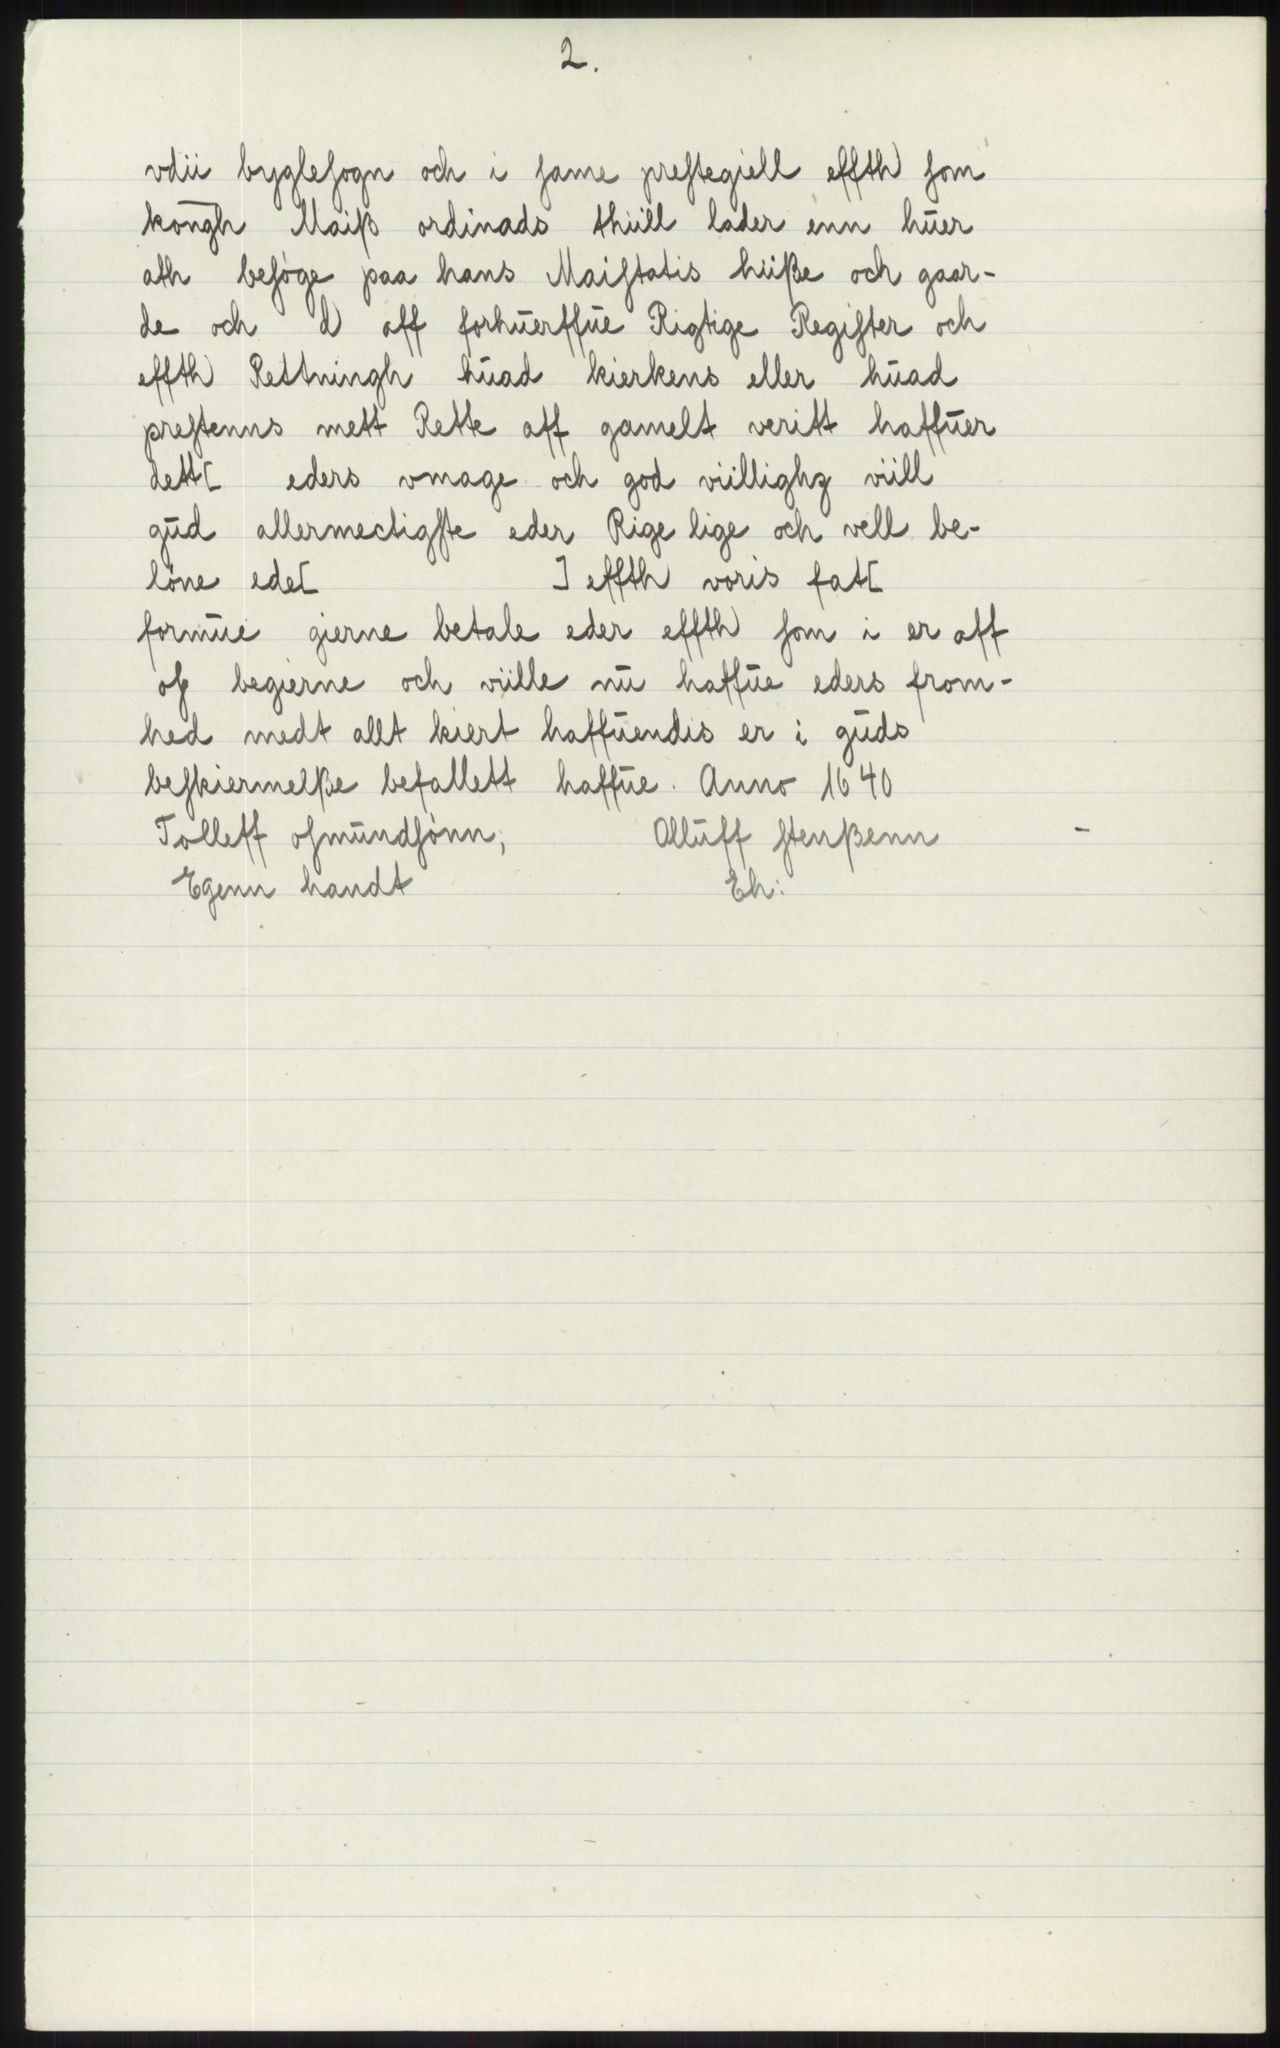 2.
vdii byglesogn och i same prestegiell effth som
kongh Maiß ordinads thiill lader enn huer
ath besøge paa hans Maistatis hüße och gaar-
de och d aff forhuerffue Rigtige Register och
effth Rettningh huad kierkens eller huad
prestenns mett Rette aff gamelt veritt haffuer
dett[ eders vmage och god viillighz viill
gud allermectigste eder Rige lige och vell be-
løne ede[ ] effth voris fat[
formue gierne betale eder effth som i er aff
os begierne och viille nu haffue eders from-
hed medt allt kiert haffuendis er i guds
beskiermelße befallett haffue. Anno 1640
Tolleff osmundsønn, Olluff stenßenn -
Egenn handt Eh: